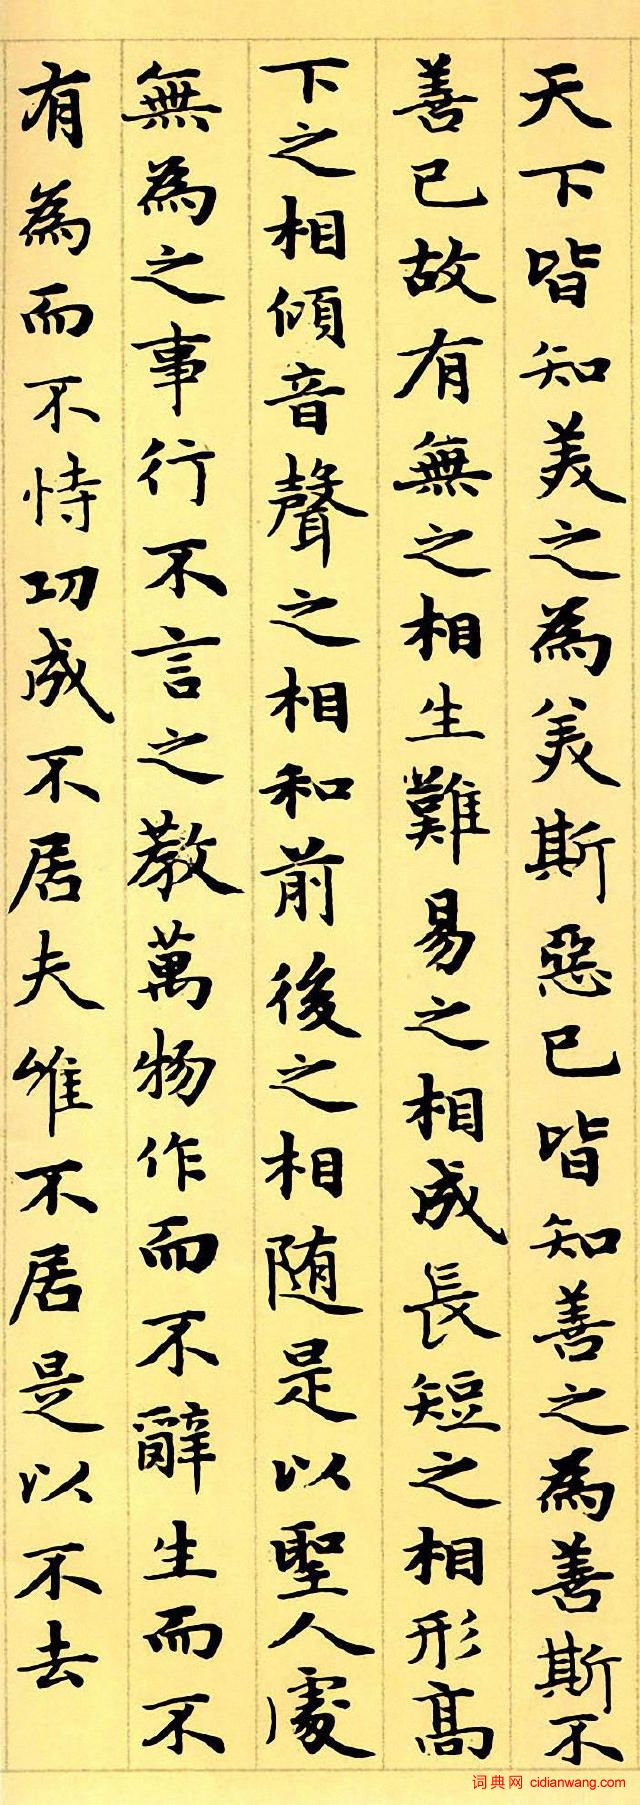 天下皆知美之為美斯惡已皆知善之為善斯不
善已故有無之相生難易之相成長短之相形高
下之相傾音聲之相和前後之相隨是以聖人處
無為之事行不言之教萬物作而不辭生而不
有為而不恃功成不居夫惟不居是以不去
词典网 cidianwang.com